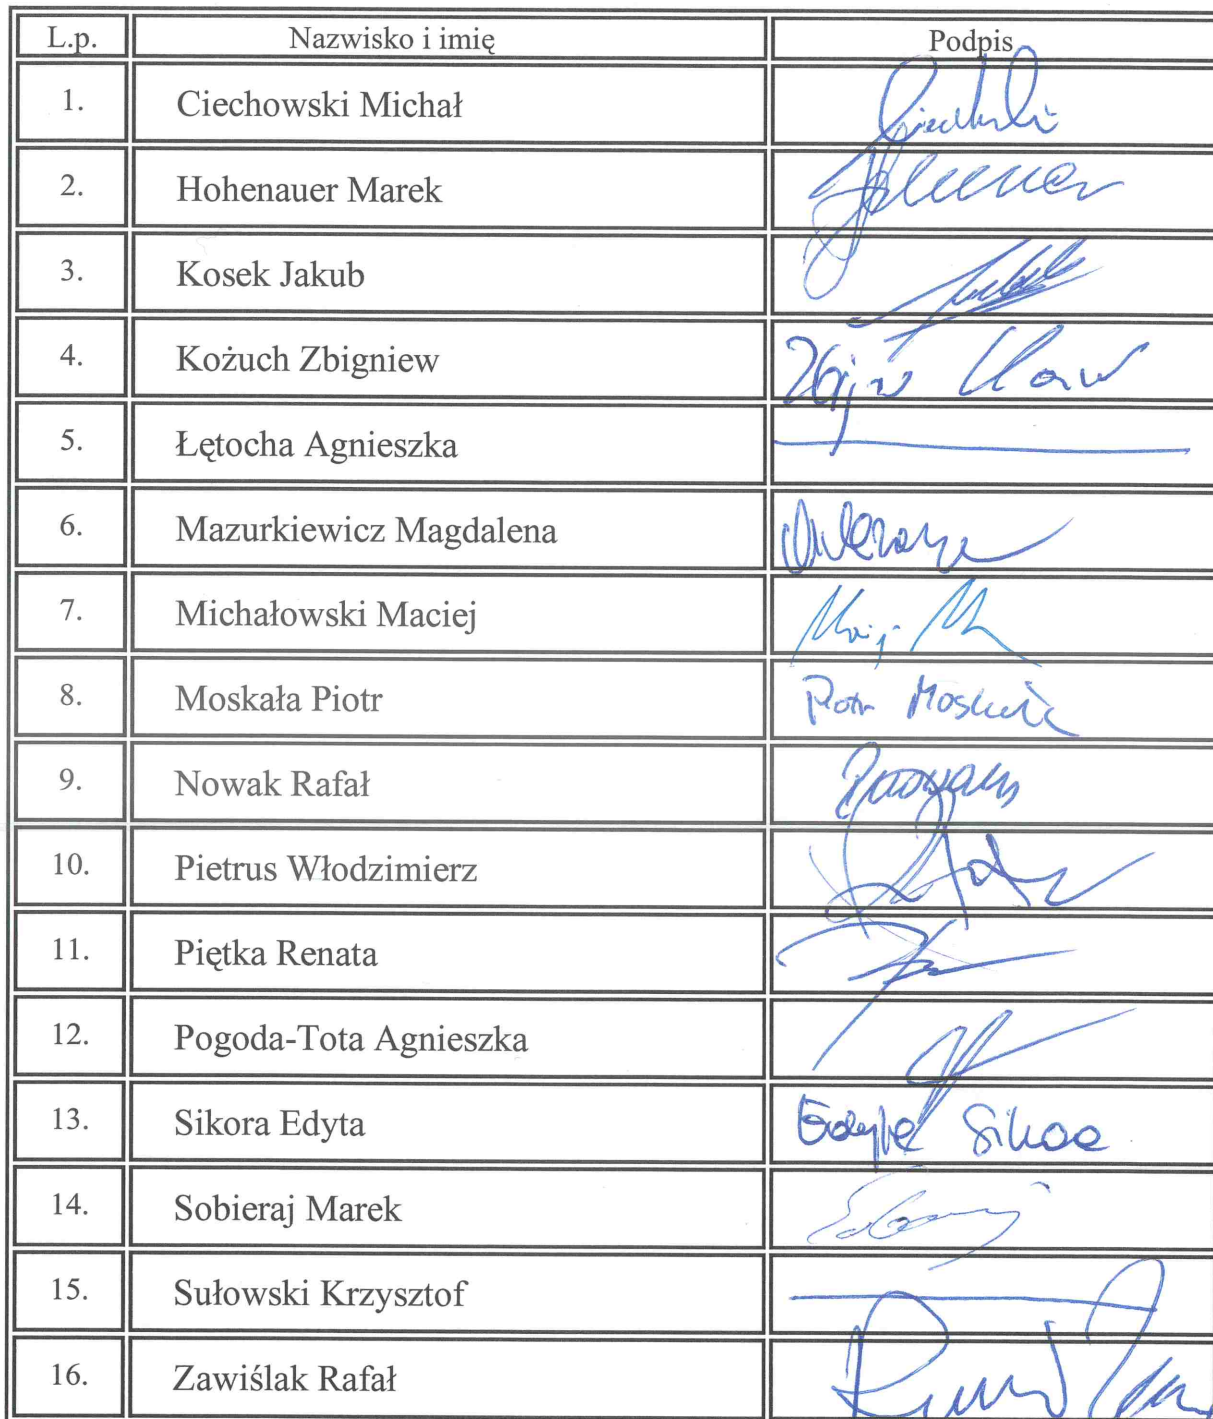 L.p. Nazwisko i imię Podpis
1. Ciechowski Michał
2. Hohenauer Marek
3. Kosek Jakub
4. Kożuch Zbigniew
5. Łętocha Agnieszka
6. Mazurkiewicz Magdalena
7. Michałowski Maciej
8. Moskała Piotr Piotr Moskała
9. Nowak Rafał
10. Pietrus Włodzimierz
11. Piętka Renata
12. Pogoda-Tota Agnieszka
13. Sikora Edyta Edyta Sikora
14. Sobieraj Marek
15. Sułowski Krzysztof
16. Zawiślak Rafał